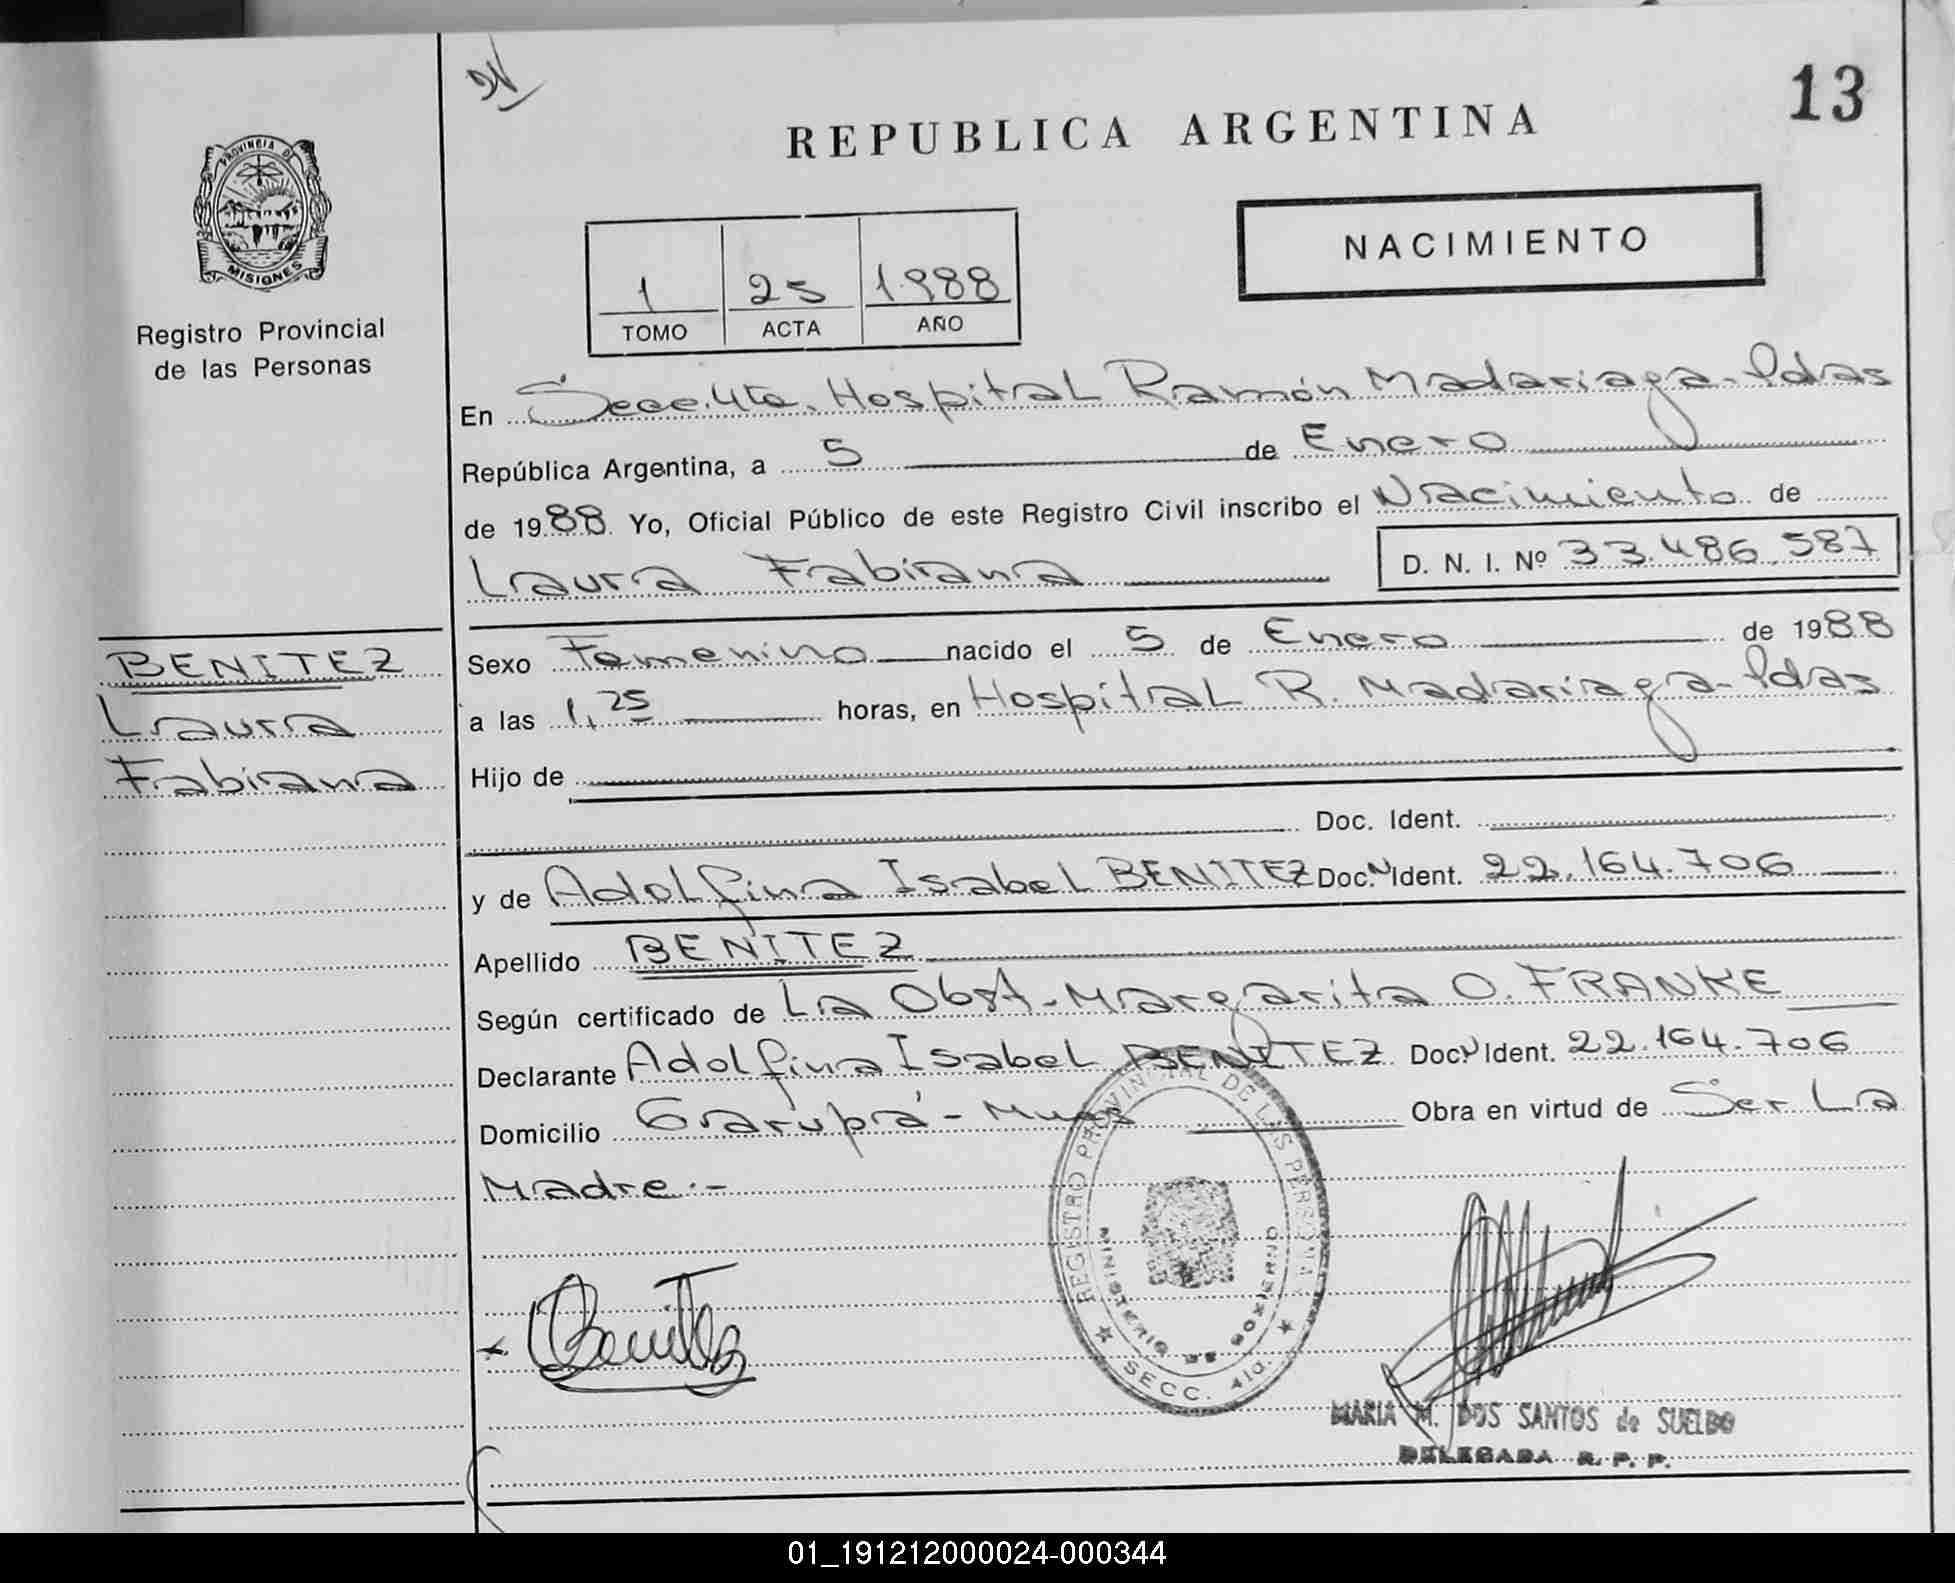 REPUBLICA ARGENTINA
13
PROVINCIA DE
MISIONES
Registro Provincial
de las Personas
NACIMIENTO
1 25 1988
TOMO ACTA AÑO
En Secc. 4ta. Hospital Ramón Madariaga - Pdas
República Argentina, a 5 de Enero
de 1988. Yo, Oficial Público de este Registro Civil inscribo el Nacimiento de
Laura Fabiana D. N. I. Nº 33.486.587
BENITEZ
Laura
Fabiana
Sexo Femenino nacido el 5 de Enero de 1988
a las 1,25 horas, en Hospital R. Madariaga - Pdas
Hijo de
Doc. Ident.
y de Adolfina Isabel BENITEZ Doc. N Ident. 22.164.706
Apellido BENITEZ
Según certificado de La Obst. Margarita O. FRANKE
Declarante Adolfina Isabel BENITEZ Doc. N Ident. 22.164.706
Domicilio Garupá - Mnes Obra en virtud de Ser La
Madre.-
REGISTRO PROVINCIAL DE LAS PERSONAS
MINISTERIO DE GOBIERNO
SECC. 4ta.
Benitez
MARIA M. DOS SANTOS de SUELDO
DELEGADA R. P. P.
01_191212000024-000344